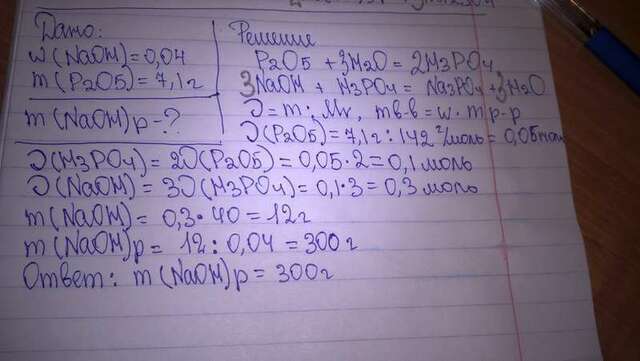 Дано:
w(NaOH)=0,04
m(P2O5)=7,1г
m(NaOH)р-?
Решение
P2O5 + 3H2O = 2H3PO4
3NaOH + H3PO4 = Na3PO4 + 3H2O
υ = m : Mr, m в.в = w · m р-р
υ(P2O5) = 7,1г : 142 г/моль = 0,05 моль
υ(H3PO4) = 2υ(P2O5) = 0,05·2 = 0,1 моль
υ(NaOH) = 3υ(H3PO4) = 0,1·3 = 0,3 моль
m(NaOH) = 0,3·40 = 12г
m(NaOH)р = 12 : 0,04 = 300 г
Ответ: m(NaOH)р = 300г